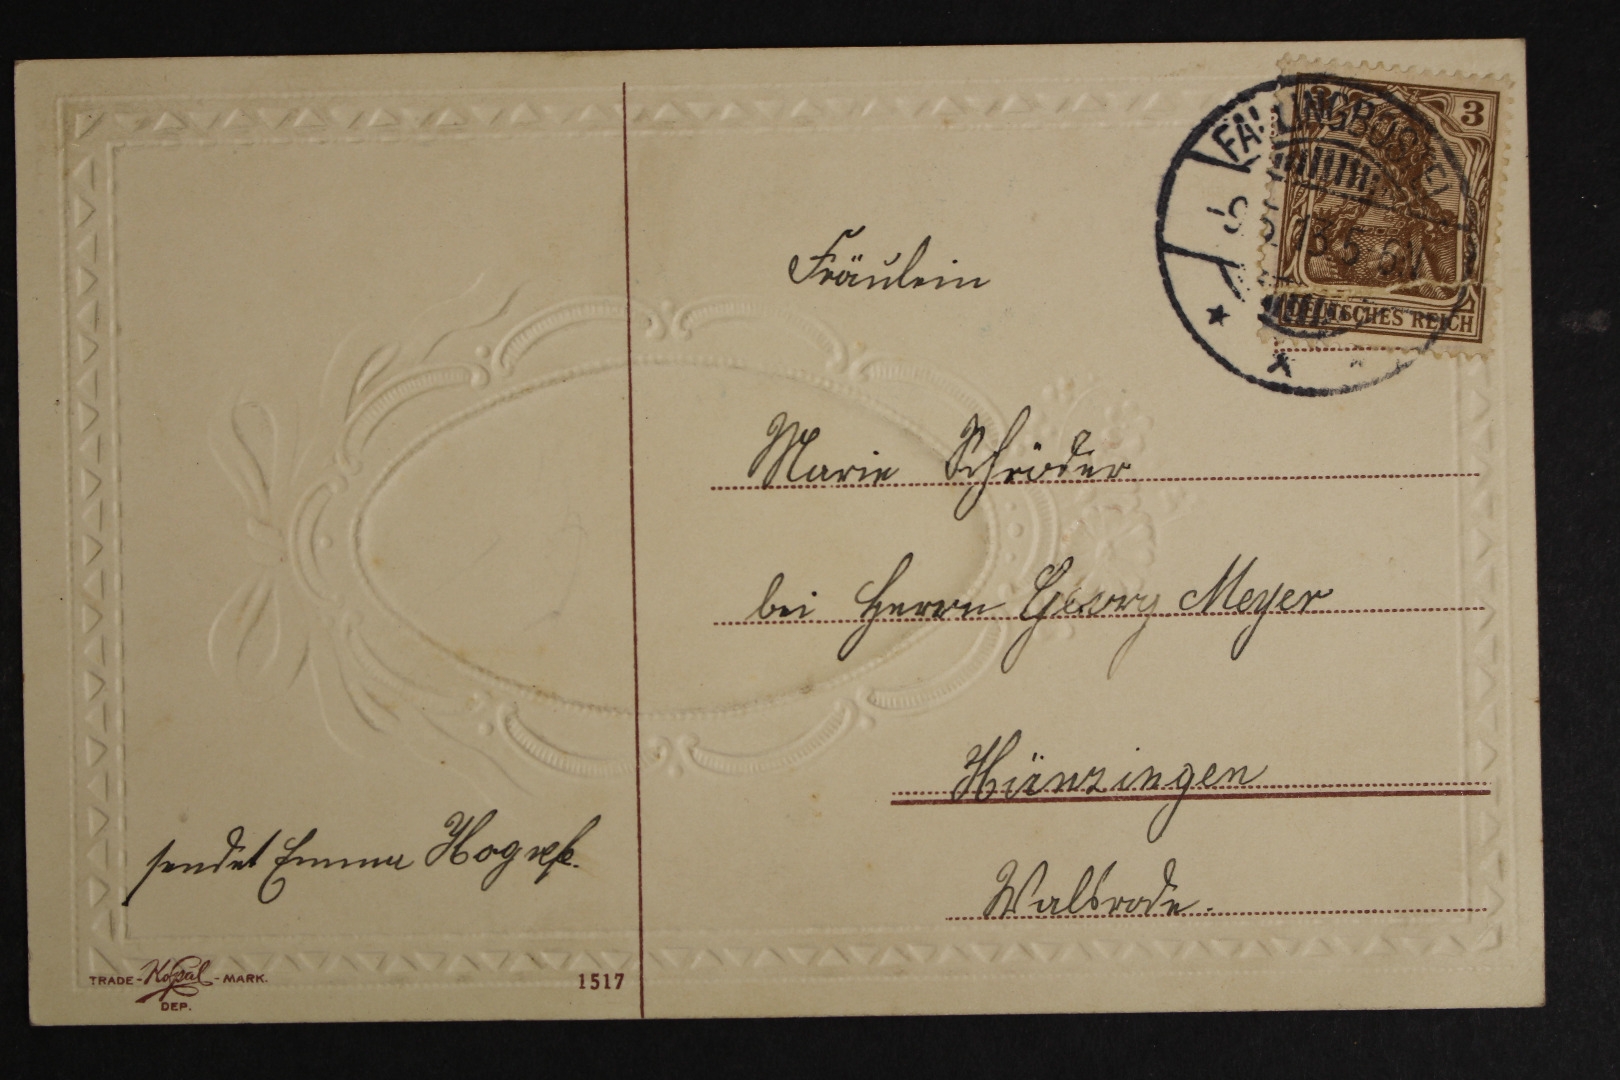 FALLINGBOSTEL
13.5-6N
3
DEUTSCHES REICH
Fräulein
Marie Schröder
bei Herrn Georg Meyer
Hünzingen
Walsrode.
sendet Emma Hogrefe.
TRADE - Kopal - MARK.
DEP.
1517